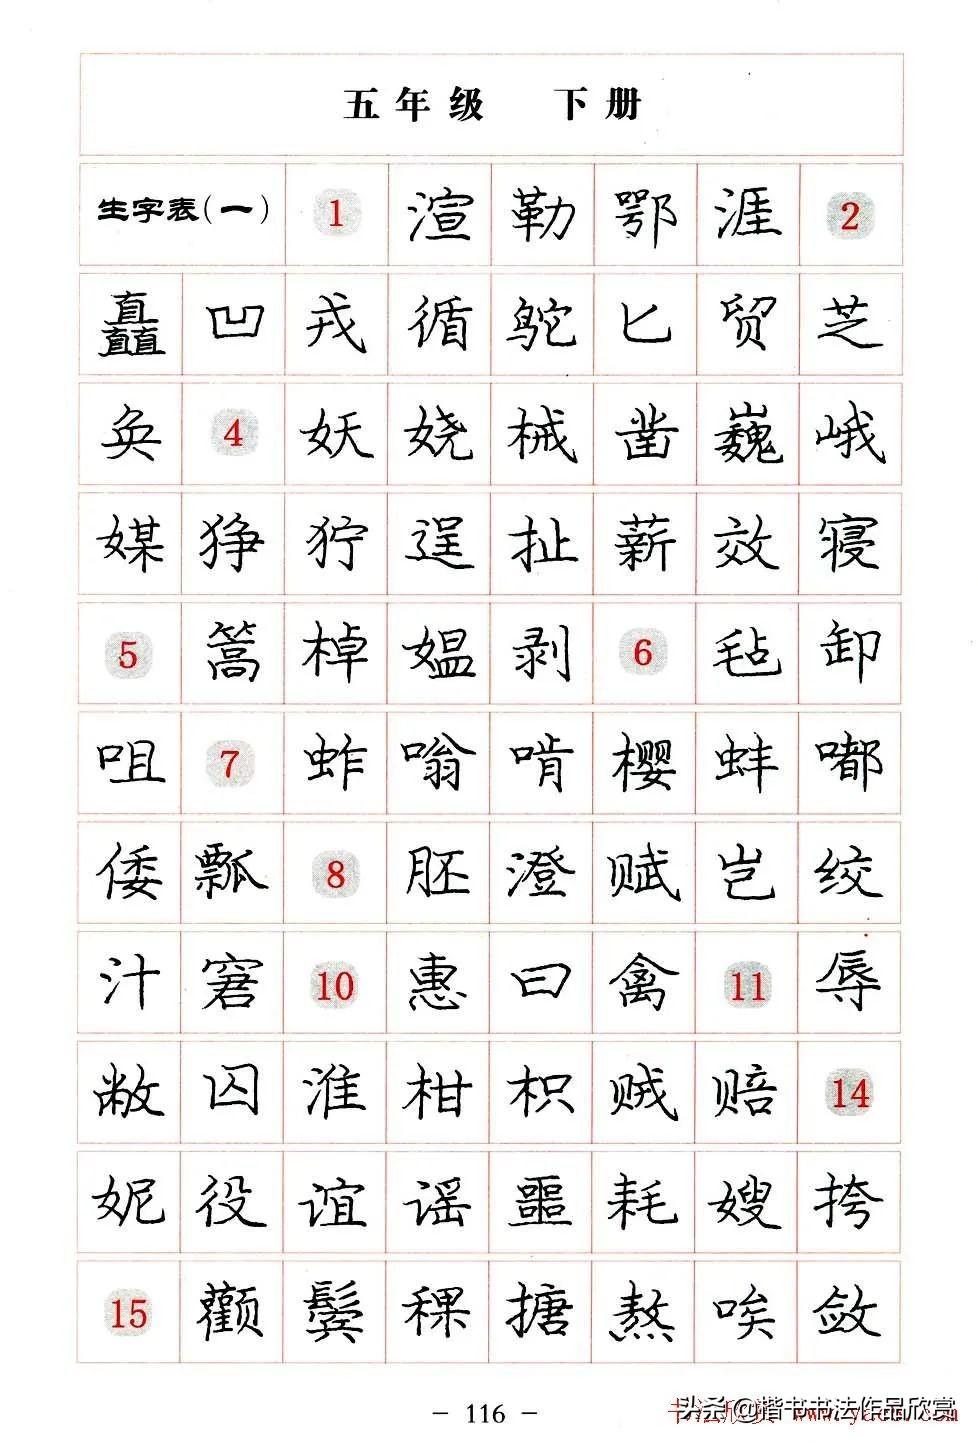 五年级 下册
生字表(一) 1 渲 勒 鄂 涯 2
矗 凹 戎 循 鸵 匕 贸 芝
奂 4 妖 娆 械 凿 巍 峨
媒 狰 狞 逞 扯 薪 效 寝
5 篙 棹 媪 剥 6 毡 卸
咀 7 蚱 嗡 啃 樱 蚌 嘟
倭 瓢 8 胚 澄 赋 岂 绞
汁 窘 10 惠 曰 禽 11 辱
敝 囚 淮 柑 枳 贼 赔 14
妮 役 谊 谣 噩 耗 嫂 挎
15 颧 鬓 稞 搪 熬 唉 敛
- 116 -
头条@楷书书法作品欣赏